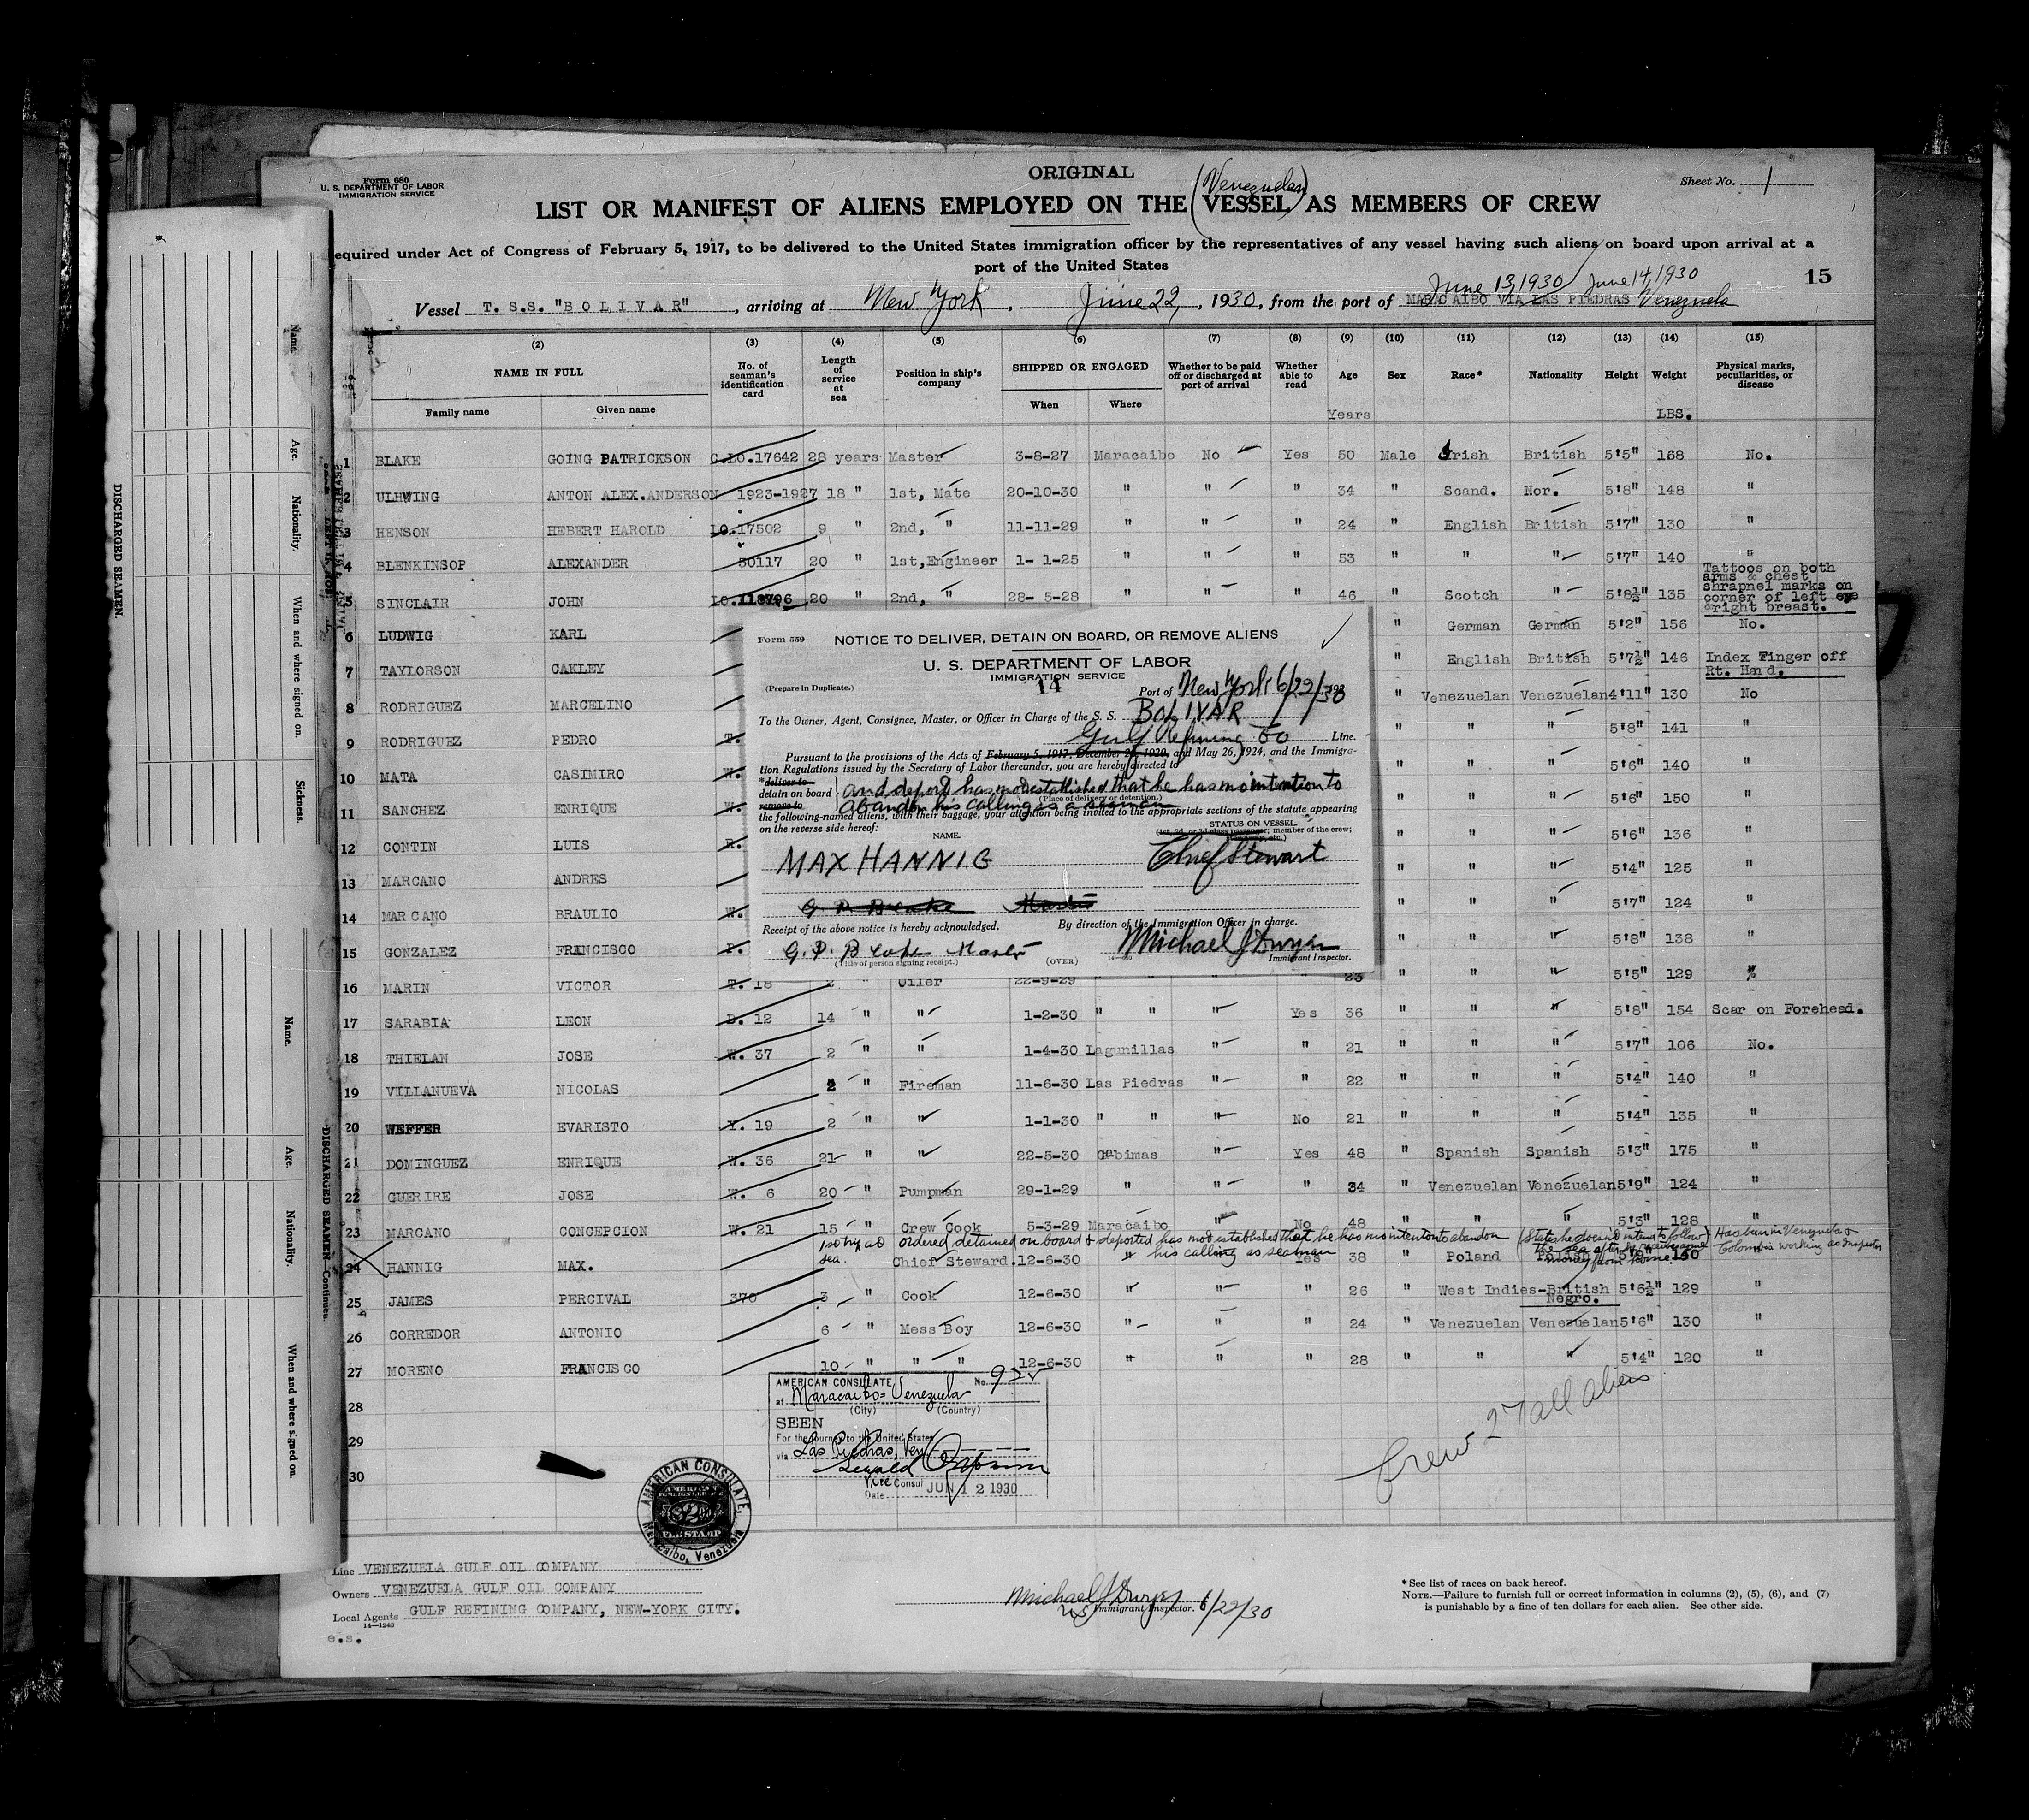 Form 680
U. S. DEPARTMENT OF LABOR
IMMIGRATION SERVICE
ORIGINAL
Sheet No. 1
(Venezuelan)
LIST OR MANIFEST OF ALIENS EMPLOYED ON THE VESSEL AS MEMBERS OF CREW
equired under Act of Congress of February 5, 1917, to be delivered to the United States immigration officer by the representatives of any vessel having such aliens on board upon arrival at a
port of the United States
June 13, 1930 June 14, 1930
15
Vessel T.S.S. "BOLIVAR", arriving at New York, June 22, 1930, from the port of MARACAIBO VIA LAS PIEDRAS Venezuela
(2) (3) (4) (5) (6) (7) (8) (9) (10) (11) (12) (13) (14) (15)
NAME IN FULL
Family name Given name
No. of seaman's identification card
Length of service at sea
Position in ship's company
SHIPPED OR ENGAGED
When Where
Whether to be paid off or discharged at port of arrival
Whether able to read
Age Years
Sex
Race*
Nationality
Height
Weight LBS.
Physical marks, peculiarities, or disease
1 BLAKE GOING PATRICKSON C.LO.17642 28 years Master 3-8-27 Maracaibo No Yes 50 Male Irish British 5'5" 168 No.
2 ULHWING ANTON ALEX.ANDERSON 1923-1927 18 " 1st, Mate 20-10-30 " " " 34 " Scand. Nor. 5'8" 148 "
3 HENSON HEBERT HAROLD LO.17502 9 " 2nd, " 11-11-29 " " " 24 " English British 5'7" 130 "
4 BLENKINSOP ALEXANDER 50117 20 " 1st,Engineer 1- 1-25 " " " 53 " " " 5'7" 140 "
5 SINCLAIR JOHN LO.118796 20 " 2nd, " 28- 5-28 " " " 46 " Scotch " 5'8½" 135 Tattoos on both arms & chest shrapnel marks on corner of left eye & right breast.
6 LUDWIG KARL " German German 5'2" 156 No.
7 TAYLORSON OAKLEY " English British 5'7½" 146 Index Finger off Rt. Hand.
8 RODRIGUEZ MARCELINO " Venezuelan Venezuelan 4'11" 130 No
9 RODRIGUEZ PEDRO T. " " " 5'8" 141 "
10 MATA CASIMIRO W. " " " 5'6" 140 "
11 SANCHEZ ENRIQUE W. " " " 5'6" 150 "
12 CONTIN LUIS R. " " " 5'6" 136 "
13 MARCANO ANDRES " " " 5'4" 125 "
14 MARCANO BRAULIO W. " " " 5'7" 124 "
15 GONZALEZ FRANCISCO P. " " " 5'8" 138 "
16 MARIN VICTOR T. 18 2 " Oiler 22-9-29 25 " " " 5'5" 129 "
17 SARABIA LEON D. 12 14 " " 1-2-30 " " " Yes 36 " " " 5'8" 154 Scar on Forehead.
18 THIELAN JOSE W. 37 2 " " 1-4-30 Lagunillas " " 21 " " " 5'7" 106 No.
19 VILLANUEVA NICOLAS 2 " Fireman 11-6-30 Las Piedras " " 22 " " " 5'4" 140 "
20 WEFFER EVARISTO Y. 19 2 " " 1-1-30 " " " No 21 " " " 5'4" 135 "
21 DOMINGUEZ ENRIQUE W. 36 21 " " 22-5-30 Cabimas " Yes 48 " Spanish Spanish 5'3" 175 "
22 GUERIRE JOSE W. 6 20 " Pumpman 29-1-29 " " " 34 " Venezuelan Venezuelan 5'9" 124 "
23 MARCANO CONCEPCION W. 21 15 " Crew Cook 5-3-29 Maracaibo " No 48 " " " 5'3" 128 "
ordered detained on board & deported has not established that he has no intention to abandon his calling as seaman
Has been in Venezuela & Colombia working as Inspector
24 HANNIG MAX. sea. Chief Steward. 12-6-30 " Yes 38 " Poland Polish 5'9" 150
25 JAMES PERCIVAL 370 3 " Cook 12-6-30 " " " 26 " West Indies-British Negro. 5'6½" 129 "
26 CORREDOR ANTONIO 6 " Mess Boy 12-6-30 " " " 24 " Venezuelan Venezuelan 5'6" 130 "
27 MORENO FRANCISCO 10 " " " 12-6-30 " " " 28 " " " 5'4" 120 "
28
29
30
Form 559
NOTICE TO DELIVER, DETAIN ON BOARD, OR REMOVE ALIENS
U. S. DEPARTMENT OF LABOR
IMMIGRATION SERVICE
14
(Prepare in Duplicate.)
Port of New York 6/22/30
To the Owner, Agent, Consignee, Master, or Officer in Charge of the S. S. BOLIVAR
Gulf Refining Co Line.
Pursuant to the provisions of the Acts of February 5, 1917, December 26, 1920, and May 26, 1924, and the Immigra-
tion Regulations issued by the Secretary of Labor thereunder, you are hereby directed to
*deliver to
detain on board
remove to
and deport has not established that he has no intention to
abandon his calling as a seaman
(Place of delivery or detention.)
the following-named aliens, with their baggage, your attention being invited to the appropriate sections of the statute appearing
on the reverse side hereof:
NAME.
STATUS ON VESSEL
(1st, 2d, or 3d class passenger; member of the crew;
MAX HANNIG Chief Stewart
G P Blake Master
Receipt of the above notice is hereby acknowledged.
By direction of the Immigration Officer in charge.
G. P. Blake Master
(Title of person signing receipt.)
(OVER)
Michael J Dwyer
Immigrant Inspector.
AMERICAN CONSULATE No. 925
at Maracaibo=Venezuela
(City) (Country)
SEEN
For the journey to the United States
via Las Piedras, Ven
Vice Consul
Date JUN 12 1930
AMERICAN CONSULATE
Maracaibo, Venezuela
FEE STAMP
Crew 27 all aliens
Line VENEZUELA GULF OIL COMPANY
Owners VENEZUELA GULF OIL COMPANY
Local Agents GULF REFINING COMPANY, NEW-YORK CITY.
14—1243
e.s.
Michael J Dwyer 6/22/30
US Immigrant Inspector.
*See list of races on back hereof.
NOTE.—Failure to furnish full or correct information in columns (2), (5), (6), and (7)
is punishable by a fine of ten dollars for each alien. See other side.
DISCHARGED SEAMEN.
Name.
Age.
Nationality.
When and where signed on.
Sickness.
DISCHARGED SEAMEN—Continued.
Name.
Age.
Nationality.
When and where signed on.